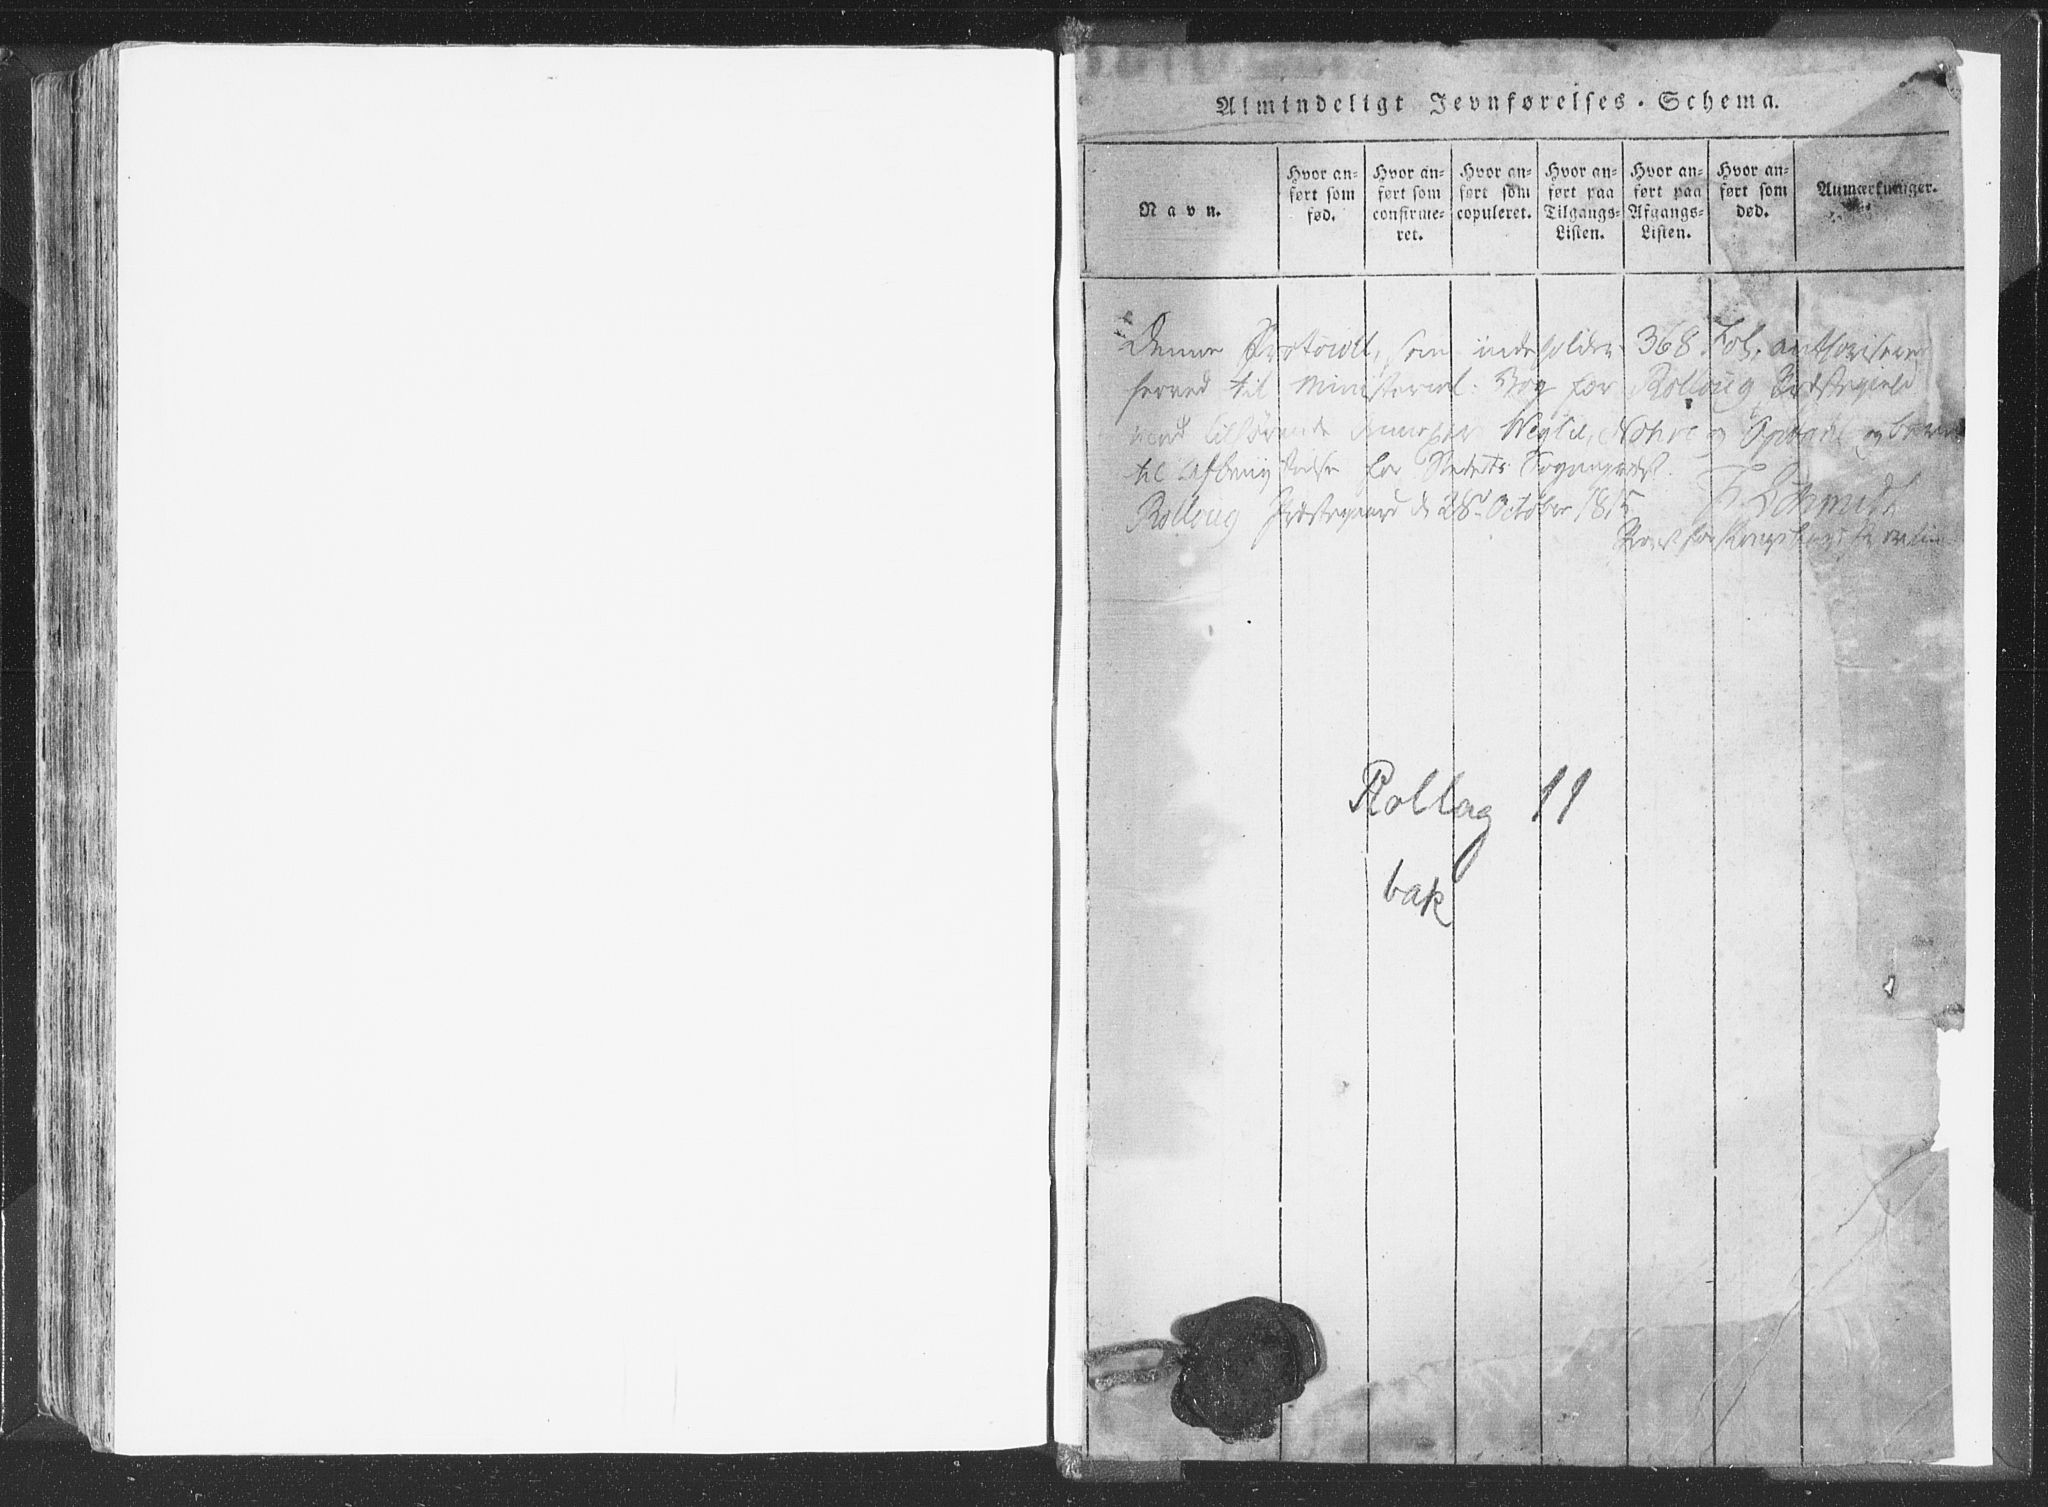 Almindeligt Jevnførelses-Schema.
Navn.
Hvor an-
ført som
fød.
Hvor an-
ført som
confirme-
ret.
Hvor an-
ført som
copuleret.
Hvor an-
ført paa
Tilgangs-
Listen.
Hvor an-
ført paa
Afgangs-
Listen.
Hvor an-
ført som
død.
Anmærkninger.
Denne Protocoll, som indeholder 368 Fol. authoriseres
herved til Ministerial Bog for Rolloug Præstegield
med tilhørende Annexer Weglie, Nohre og Opdahl og
til Afbenyttelse for Stedets Sognepræst.
Rolloug Præstegaard d 28d October 1815 F. Schmidt
Rollag 11
bak